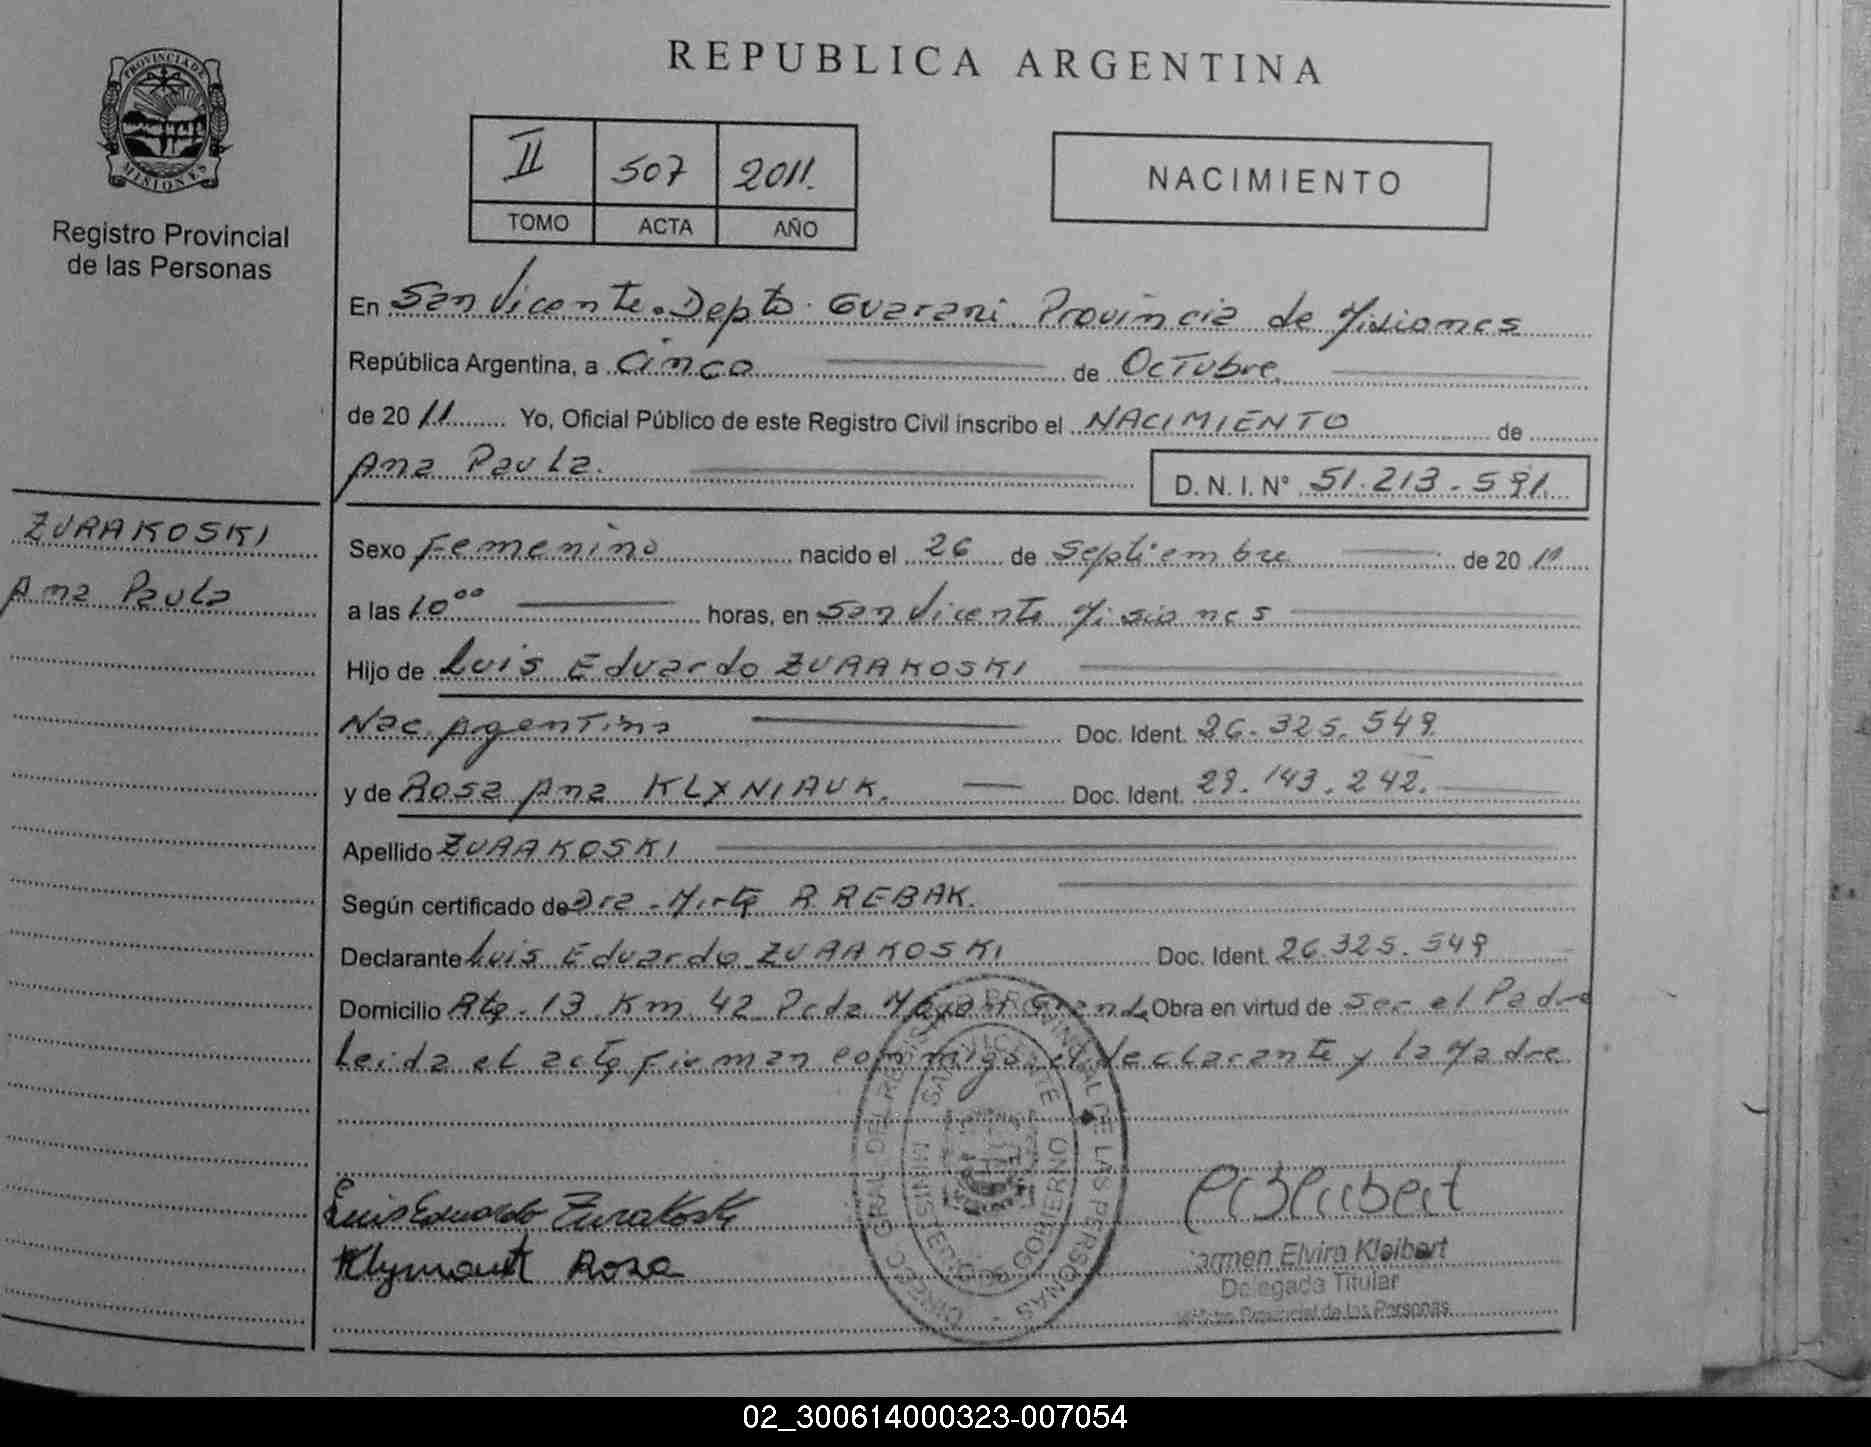 REPUBLICA ARGENTINA
PROVINCIA DE
MISIONES
Registro Provincial
de las Personas
II 507 2011.
TOMO ACTA AÑO
NACIMIENTO
En San Vicente. Depto. Guarani. Provincia de Misiones
República Argentina, a Cinco de Octubre.
de 2011 Yo, Oficial Público de este Registro Civil inscribo el NACIMIENTO de
Ana Paula. D. N. I. N° 51.213.591.
ZURAKOSKI
Ana Paula
Sexo Femenino nacido el 26 de Septiembre de 2011
a las 10⁰⁰ horas, en San Vicente Misiones
Hijo de Luis Eduardo ZURAKOSKI
Nac. Argentina Doc. Ident. 26.325.549.
y de Rosa Ana KLYNIAUK. Doc. Ident. 29.143.242.
Apellido ZURAKOSKI
Según certificado de Dra. Mirta R. REBAK.
Declarante Luis Eduardo ZURAKOSKI Doc. Ident. 26.325.549
Domicilio Rta. 13 Km 42 Pcda Obra en virtud de ser el Padre
Leida el acta firman conmigo el declarante y la Madre
Luis Eduardo Zurakoski
Rosa
DIRECC. GRAL. DEL REGISTRO PROVINCIAL DE LAS PERSONAS
SAN VICENTE
MINISTERIO DE GOBIERNO
Carmen Elvira Kleibert
Delegada Titular
Registro Provincial de las Personas
02_300614000323-007054